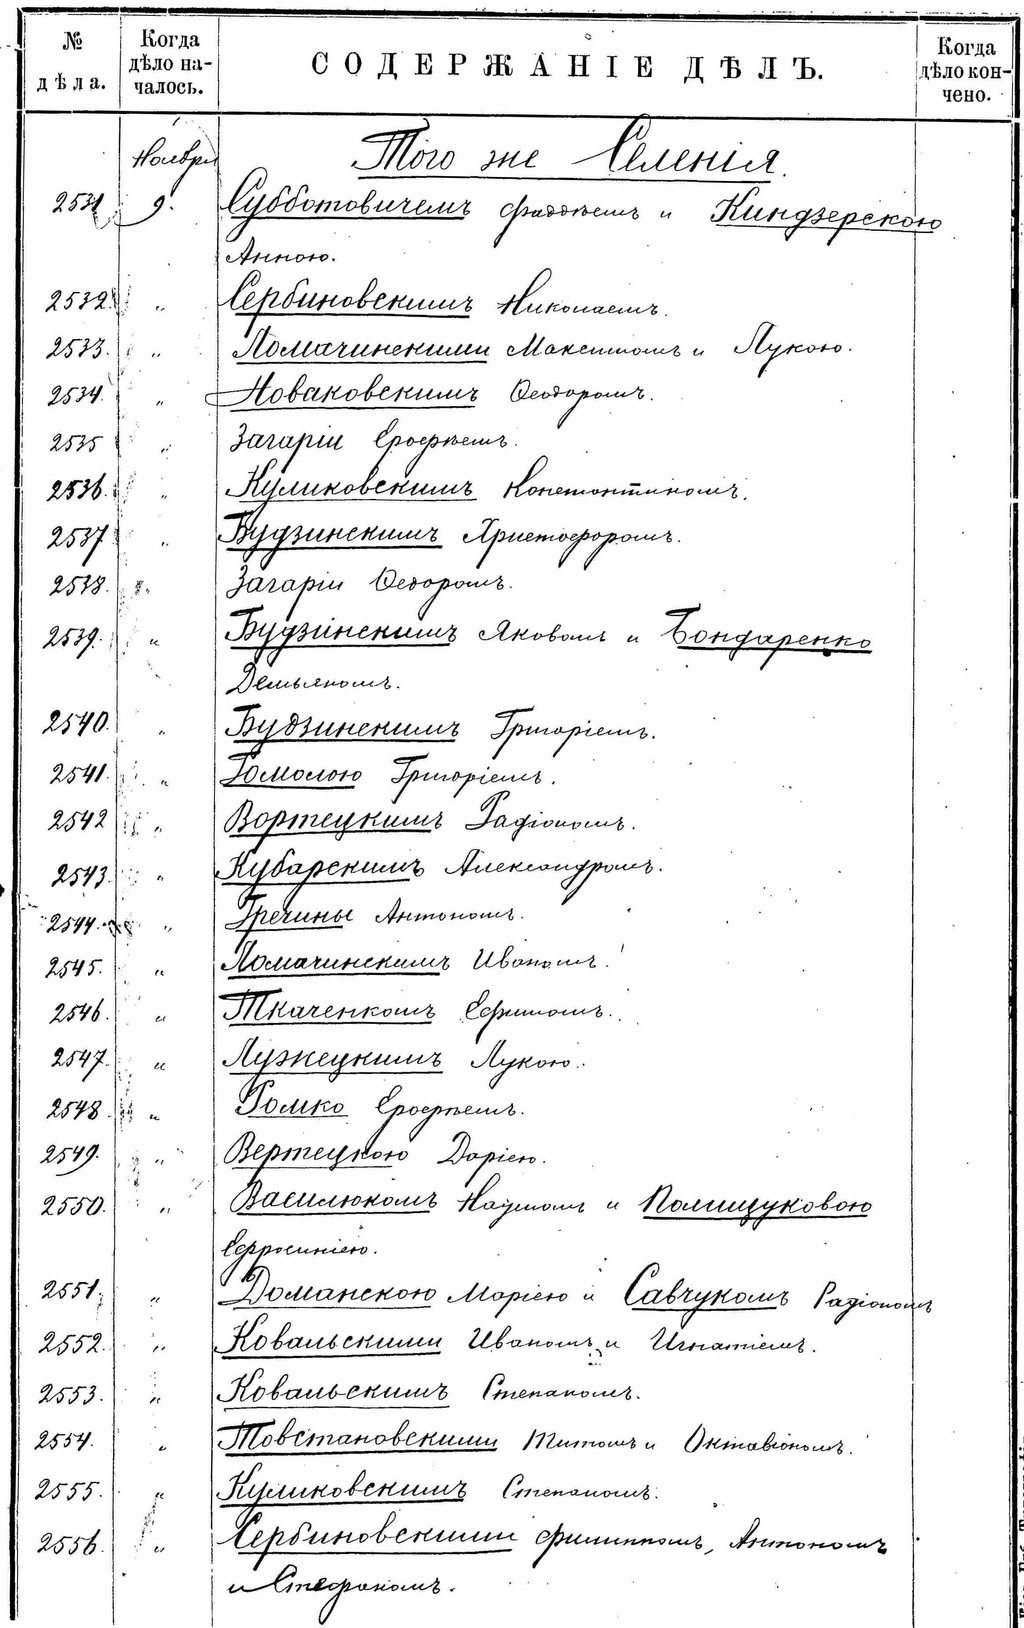 № дѣла.
Когда дѣло на-
чалось.
СОДЕРЖАНІЕ ДѢЛЪ.
Когда дѣло кон-
чено.
Ноября
Того же Селенія.
2531 9. Субботовичемъ Фаддѣемъ и Киндзерскою
Анною.
2532 „ Сербиновскимъ Николаемъ.
2533. „ Ломачинскими Максимомъ и Лукою.
2534. „ Новаковскимъ Ѳеодоромъ.
2535 „ Загаріи Ерофѣемъ.
2536. „ Куликовскимъ Константиномъ.
2537 „ Будзинскимъ Христофоромъ.
2538. „ Загаріи Ѳедоромъ.
2539. „ Будзинскимъ Яковомъ и Бондаренко
Демьяномъ.
2540. „ Будзинскимъ Григоріемъ.
2541. „ Гомолою Григоріемъ.
2542 „ Вортецкимъ Радіономъ.
2543. „ Кубарскимъ Александромъ.
2544. „ Гречины Антономъ.
2545. „ Ломачинскимъ Иваномъ.
2546. „ Ткаченкомъ Ефимомъ.
2547. „ Лужецкимъ Лукою.
2548 „ Ромко Ерофѣемъ.
2549. „ Вертецкою Даріею.
2550. „ Василюкомъ Наумомъ и Полищуковою
Ефросиніею.
2551. „ Доманскою Маріею и Савчукомъ Радіономъ
2552. „ Ковальскими Иваномъ и Игнатіемъ.
2553. „ Ковальскимъ Степаномъ.
2554. „ Товстановскими Титомъ и Октавіономъ.
2555. „ Куликовскимъ Степаномъ.
2556. „ Сербиновскими Филиппомъ, Антономъ
и Стефаномъ.